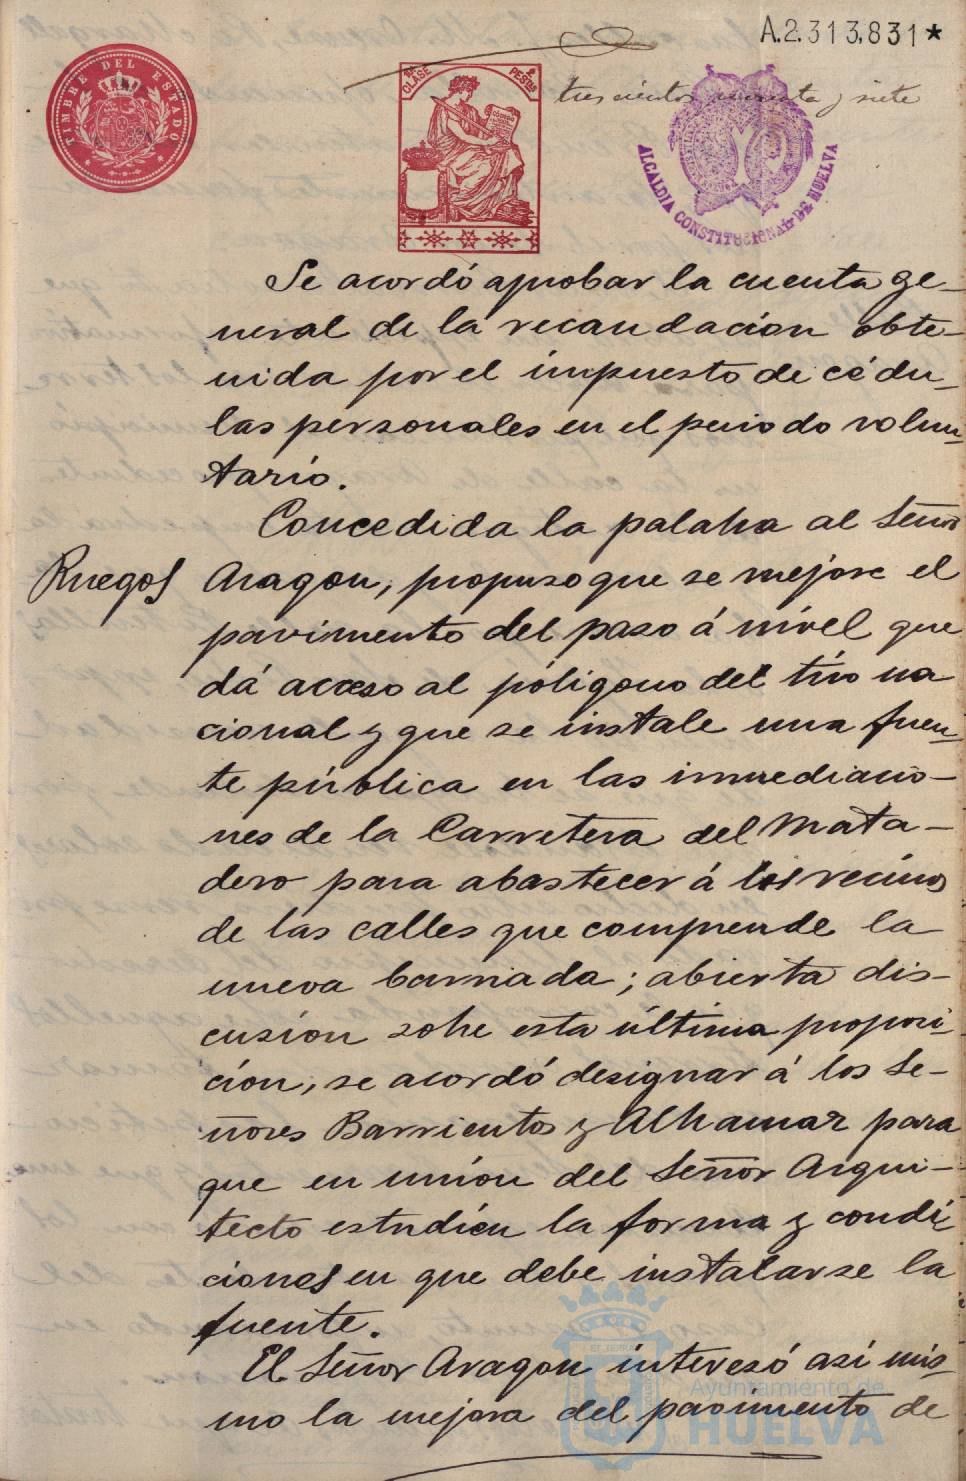 A.2.313.831*
TIMBRE DEL ESTADO
8ª CLASE
2 PESETAS
tres cientos y siete
ALCALDIA CONSTITUCIONAL DE HUELVA
Se acordó aprobar la cuenta ge-
neral de la recaudacion obte-
nida por el impuesto de cédu-
las personales en el periodo volun-
tario.
Concedida la palabra al Señor
Ruegos
Aragon, propuso que se mejore el
pavimento del paso á nivel que
dá acceso al póligono del tiro na
cional y que se instale una fuen-
te pública en las inmediacio-
nes de la Carretera del Mata-
dero para abastecer á los vecinos
de las calles que comprende la
nueva barriada; abierta dis-
cusion sobre esta última proposi-
ción, se acordó designar á los Se-
ñores Barrientos y Alhamar para
que en unión del Señor Arqui-
tecto estudien la forma y condi
ciones en que debe instalarse la
fuente.
El Señor Aragon interesó así mis-
mo la mejora del pavimento de
Ayuntamiento de
HUELVA